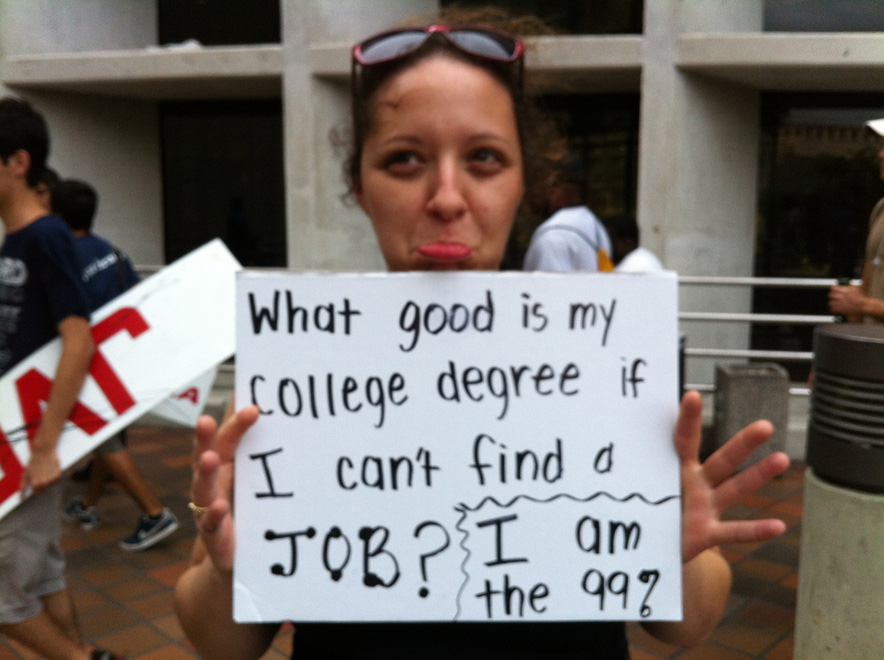 What good is my
college degree if
I can't find a
JOB?
I am
the 99%